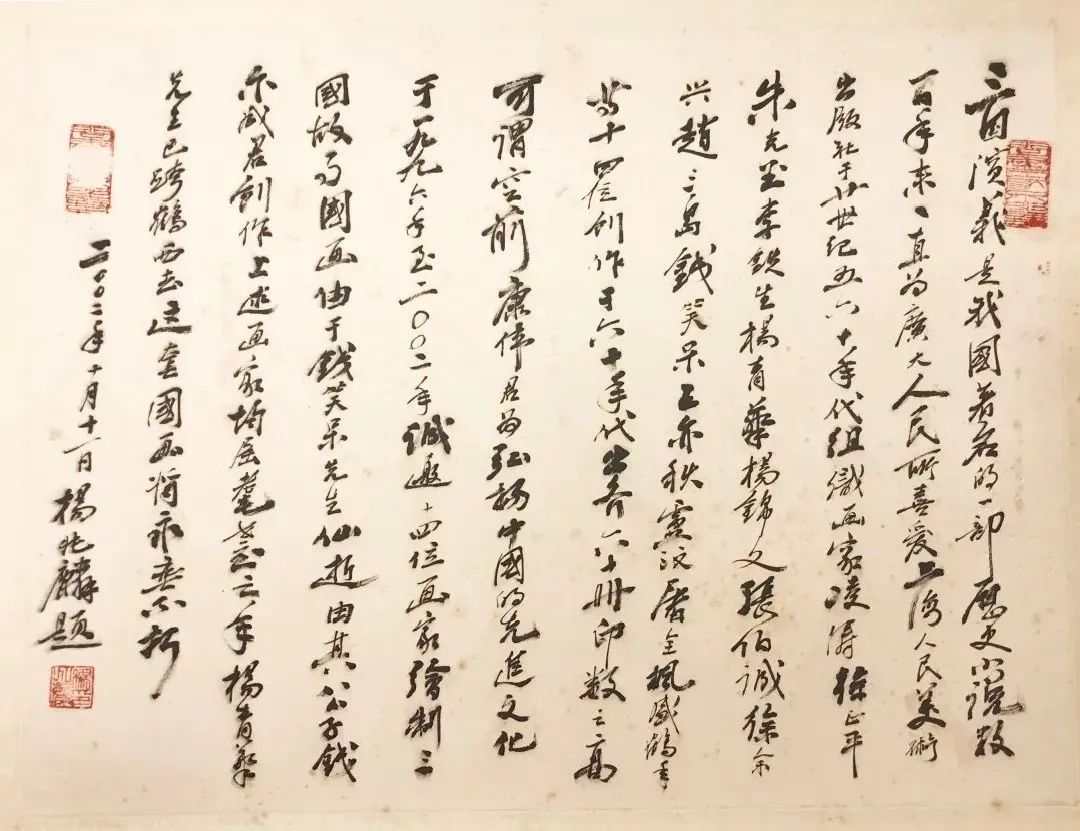 三国演義是我國著名的一部歷史小説数
百年来、一直为廣大人民所喜爱上海人民美術
出版社于廿世纪五六十年代组織画家凌涛徐正平
朱光玉李铁生楊青華楊錦文張伯诚徐余
兴趙三島錢笑呆王亦秋盧汶屠全楓盛鶴年
等十四位創作于六十年代出齐六十册印数之高
可謂空前康伟君为弘扬中國的先進文化
于一九九六年至二〇〇二年诚邀十四位画家繪制三
國故事國画由于錢笑呆先生仙逝由其公子錢
亦成君創作上述画家均届耄耋之年楊青華
先生已跨鶴西去这套國画将永垂不朽
二〇〇二年十月十一日楊兆麟題